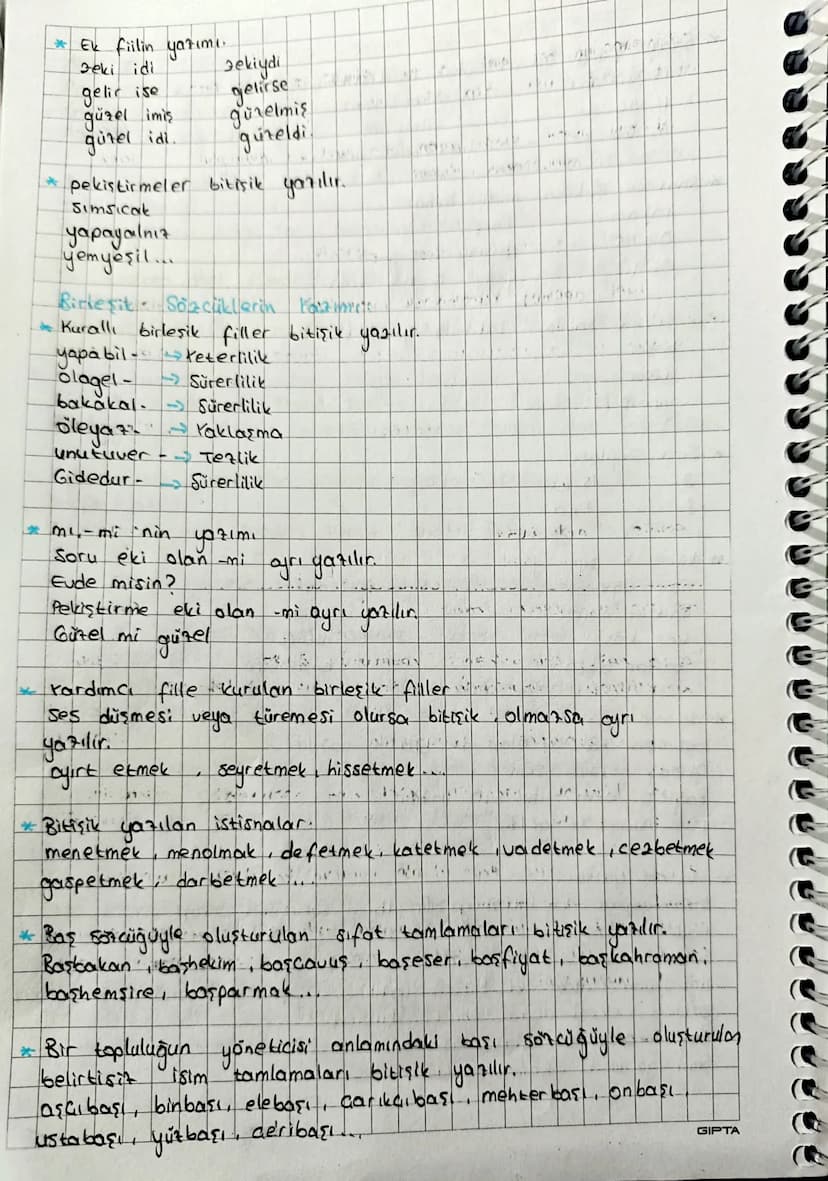 * Ek fiilin yazımı.
zeki idi zekiydi
gelir ise gelirse
güzel imiş güzelmiş
güzel idi. güzeldi.
* pekiştirmeler bitişik yazılır.
sımsıcak
yapayalnız
yemyeşil...
Birleşik Sözcüklerin Yazımı:
* Kurallı birleşik filler bitişik yazılır.
yapabil- → Yeterlilik
olagel- → Sürerlilik
bakakal- → Sürerlilik
öleyaz- → Yaklaşma
unutuver- → Tezlik
Gidedur- → Sürerlilik
* mı, -mi 'nin yazımı
Soru eki olan -mi ayrı yazılır.
Evde misin?
Pekiştirme eki olan -mi ayrı yazılır.
Güzel mi güzel
* Yardımcı fille kurulan birleşik filler
Ses düşmesi veya türemesi olursa bitişik, olmazsa ayrı
yazılır.
ayırt etmek, seyretmek, hissetmek...
* Bitişik yazılan istisnalar.
menetmek, menolmak, defetmek, katetmek, vadetmek, cezbetmek
gaspetmek, darbetmek...
* Baş sözcüğüyle oluşturulan sıfat tamlamaları bitişik yazılır.
Başbakan, başhekim, başçavuş, başeser, başfiyat, başkahraman,
başhemşire, başparmak...
* Bir topluluğun yöneticisi anlamındaki başı sözcüğüyle oluşturulan
belirtisiz isim tamlamaları bitişik yazılır.
aşçıbaşı, binbaşı, elebaşı, çarıkçıbaşı, mehterbaşı, onbaşı,
ustabaşı, yüzbaşı, deribaşı...
GIPTA